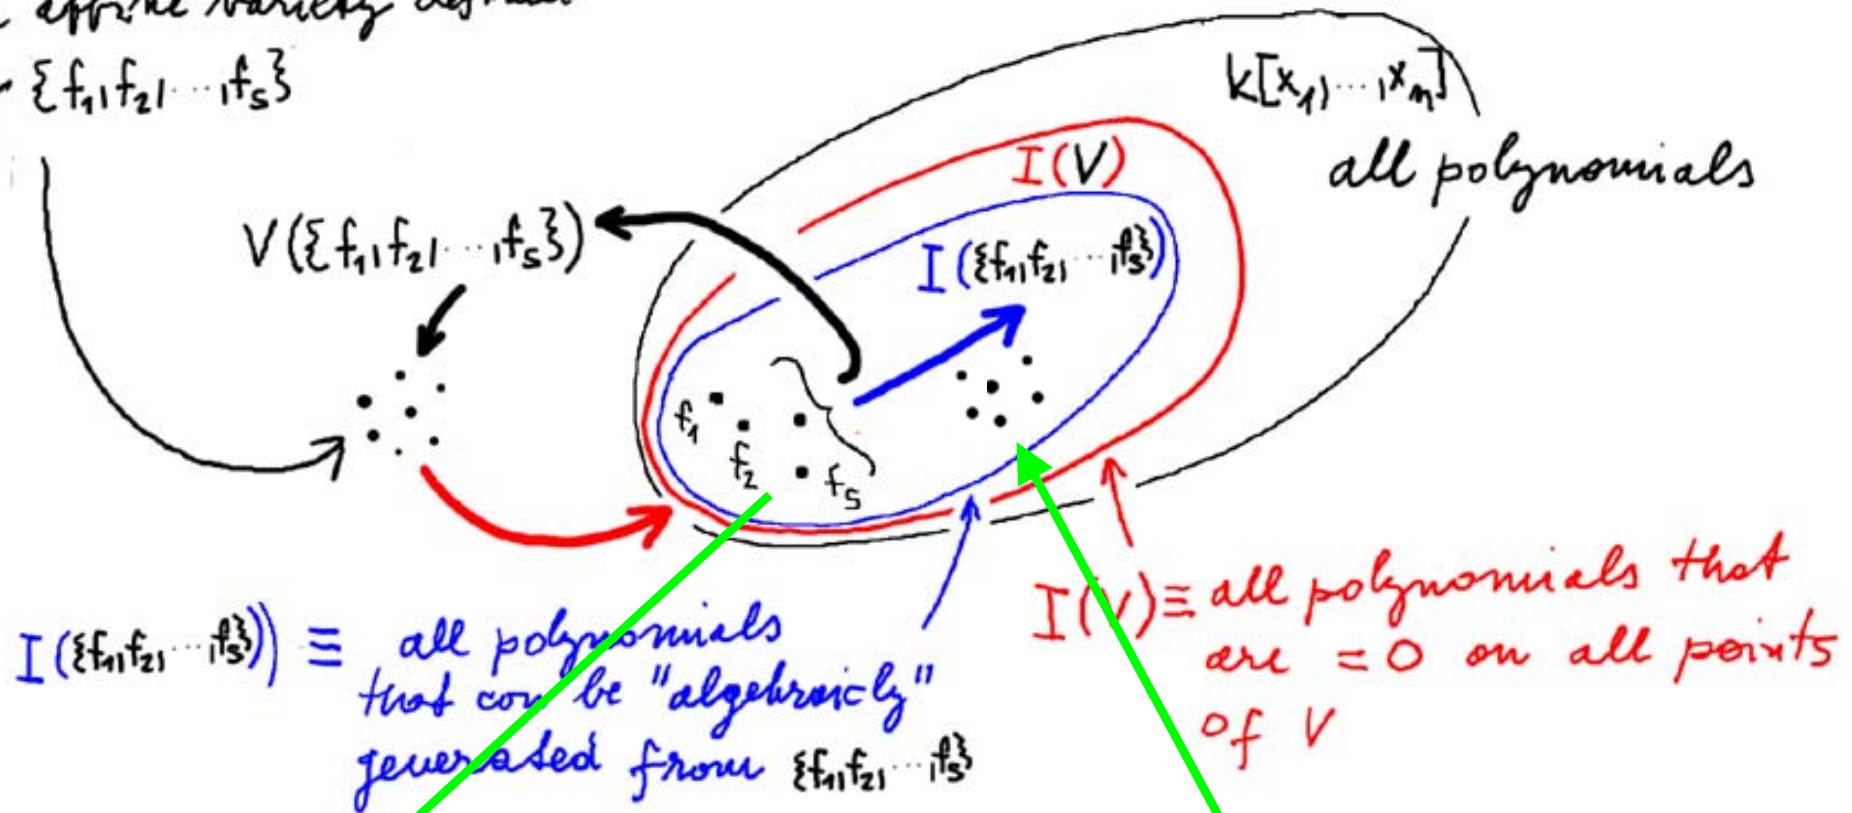 affine variety
{f₁,f₂,…,fₛ}
k[x₁,…,xₙ]
all polynomials
I(V)
V({f₁,f₂,…,fₛ})
I({f₁,f₂,…,fₛ})
f₁
f₂
fₛ
I({f₁,f₂,…,fₛ})) ≡ all polynomials
that can be "algebraicly"
generated from {f₁,f₂,…,fₛ}
I(V) ≡ all polynomials that
are = 0 on all points
of V